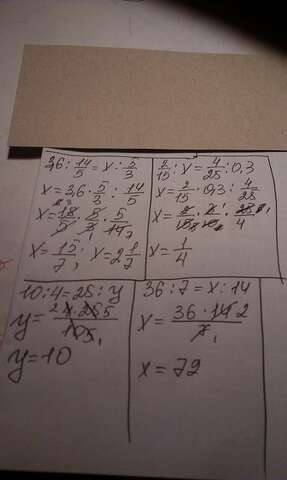 3,6 : 14/5 = x : 5/3
x = 3,6 · 5/3 : 14/5
x = 18/5 · 5/3 · 5/14
x = 15/7; x = 2 1/7
2/15 : x = 4/25 : 0,3
x = 2/15 · 0,3 : 4/25
x = 2/15 · 3/10 · 25/4
x = 1/4
10 : 4 = 25 : y
y = 4 · 25/10
y = 10
36 : 7 = x : 14
x = 36 · 14 2/7 1
x = 72